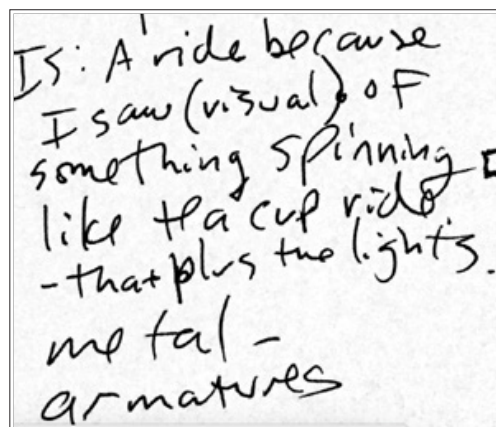 Is: A ride because
I saw (visual) of
something spinning
like tea cup ride
- that plus the lights.
metal -
armatures